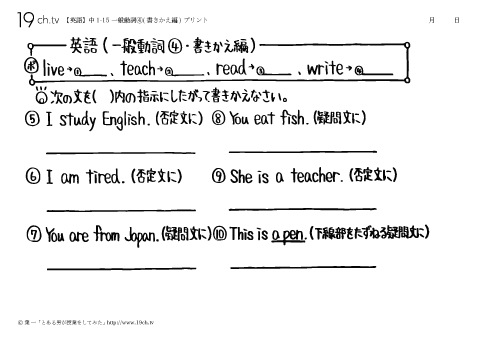 19ch.tv 【英語】中1-15 一般動詞④(書きかえ編)プリント 月 日
英語(一般動詞④・書きかえ編)
ポ live→①____, teach→②____, read→③____, write→④____
次の文を( )内の指示にしたがって書きかえなさい。
⑤ I study English.(否定文に) ⑧ You eat fish.(疑問文に)
⑥ I am tired.(否定文に) ⑨ She is a teacher.(否定文に)
⑦ You are from Japan.(疑問文に) ⑩ This is a pen.(下線部をたずねる疑問文に)
© 葉一「とある男が授業をしてみた」http://www.19ch.tv